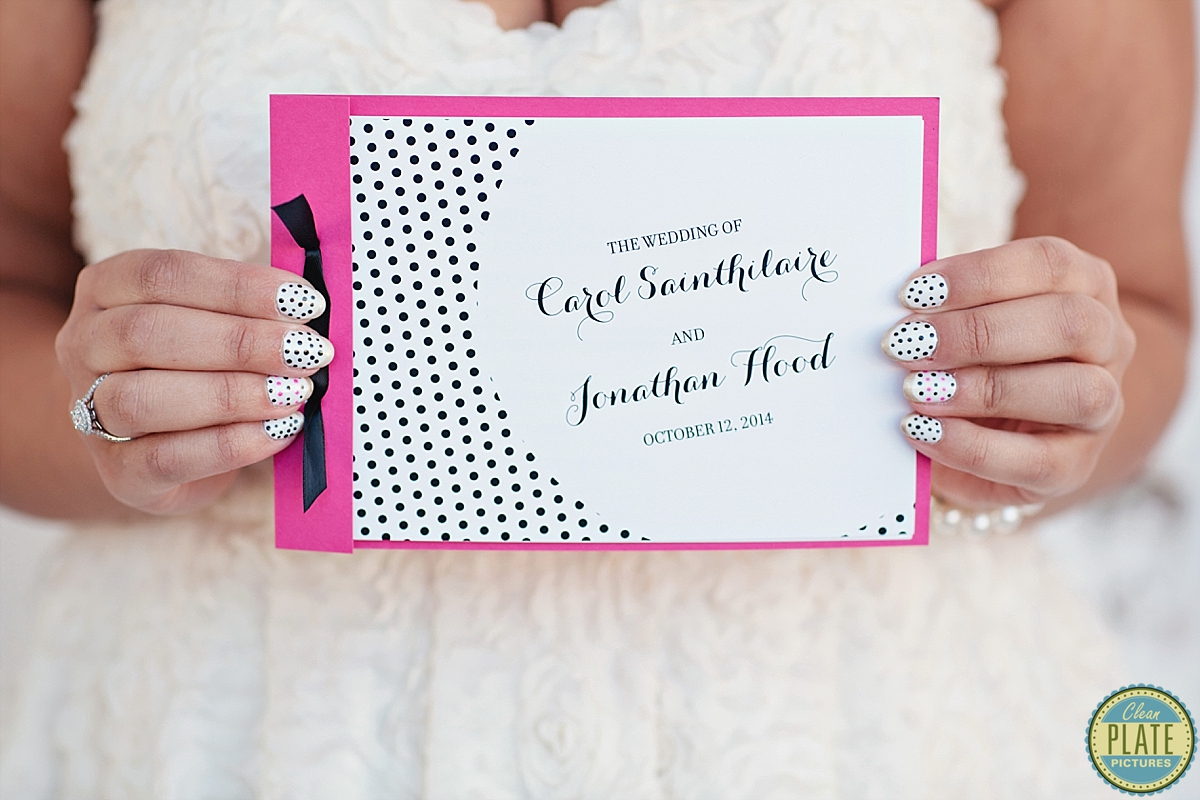 THE WEDDING OF
Carol Sainthilaire
AND
Jonathan Hood
OCTOBER 12, 2014
Clean
PLATE
PICTURES